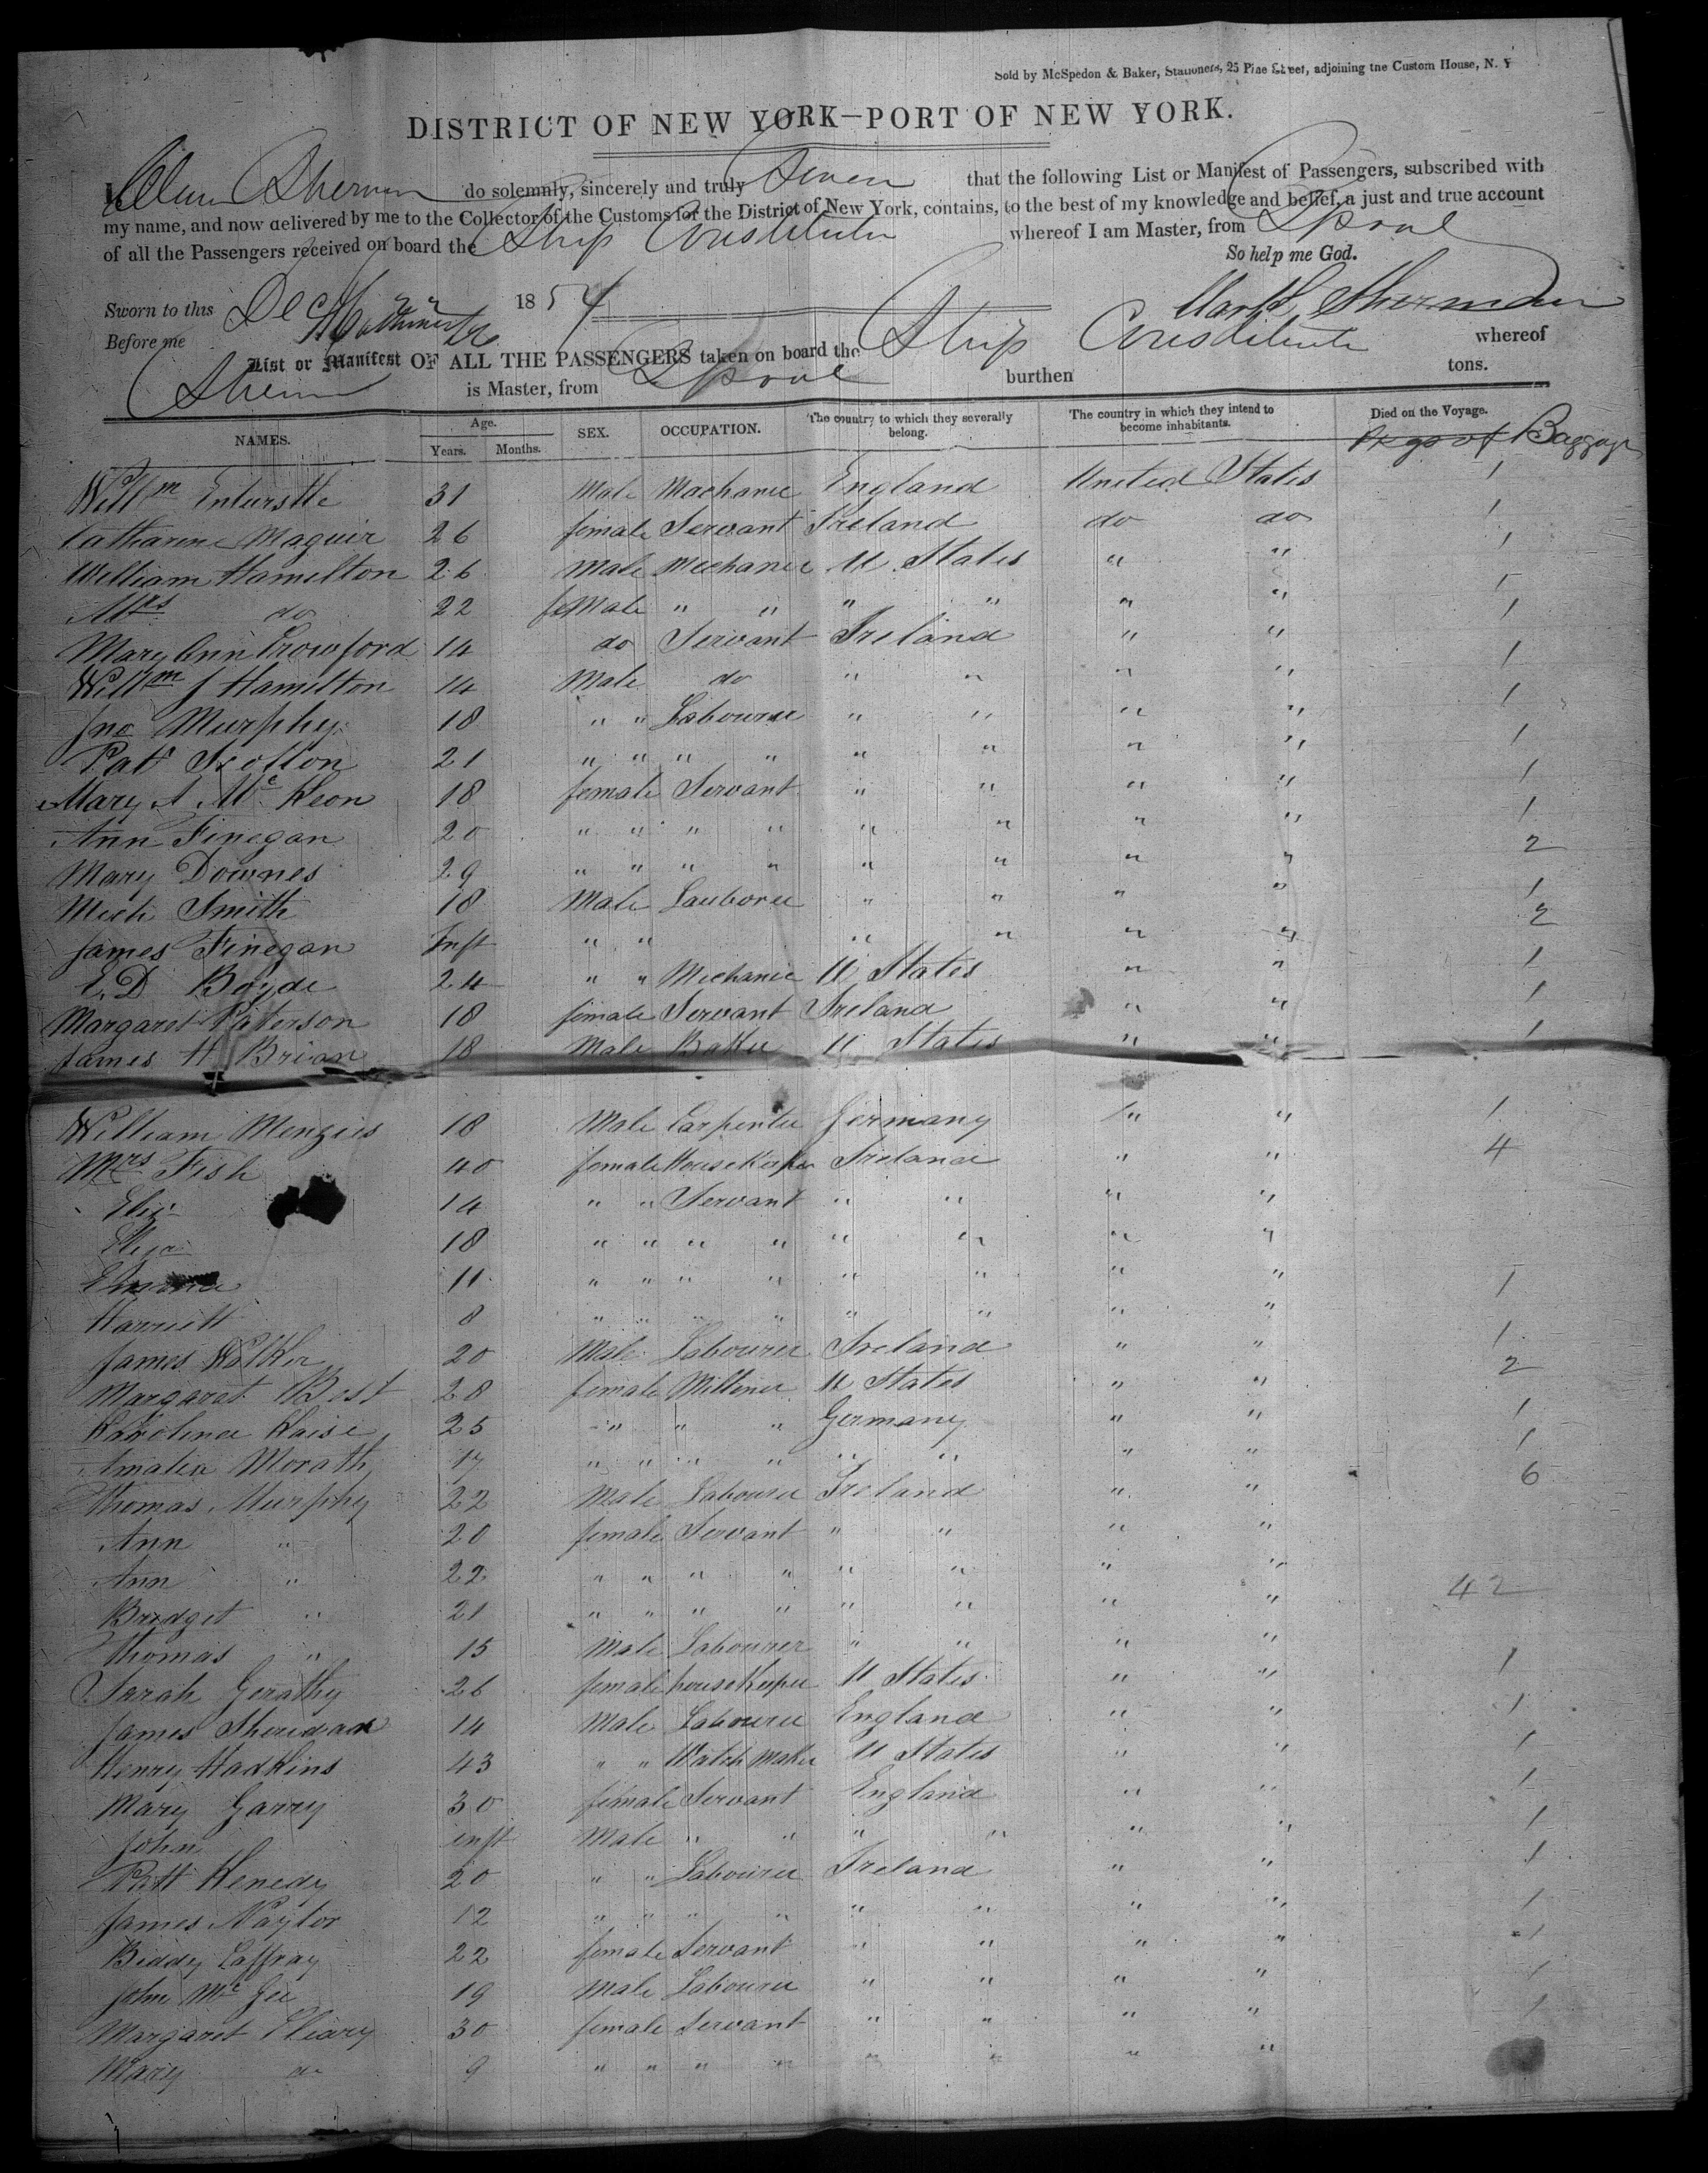 Sold by McSpedon & Baker, Stationers, 25 Pine Street, adjoining the Custom House, N. Y
DISTRICT OF NEW YORK—PORT OF NEW YORK.
I, Sherman do solemnly, sincerely and truly Swear that the following List or Manifest of Passengers, subscribed with
my name, and now delivered by me to the Collector of the Customs for the District of New York, contains, to the best of my knowledge and belief, a just and true account
of all the Passengers received on board the Ship Constitution whereof I am Master, from Lpool
So help me God.
Sworn to this Dec 1854 Sherman
Before me
List or Manifest OF ALL THE PASSENGERS taken on board the Ship Constitution whereof
Sherman is Master, from Lpool burthen tons.
NAMES. Age. Years. Months. SEX. OCCUPATION. The country to which they severally belong. The country in which they intend to become inhabitants. Died on the Voyage.
Pkgs of Baggage
Willm Enturstle 31 Male Machanic England United States 1
Catharine Maguir 26 female Servant Ireland do do 1
William Hamilton 26 Male Mechanic U States " " 1
Mrs do 22 feMale " " " " " " 1
Mary Ann Crowford 14 do Servant Ireland " " 1
Willm J Hamilton 14 Male do " " " " 1
Jno Murphy 18 " " Labourer " " " " 1
Pat 21 " " " " " " " " 1
Mary A Mc Keon 18 female Servant " " " " 1
Ann Finegan 20 " " " " " " " " 1
Mary Downes 29 " " " " " " " " 2
Mich Smith 18 Male Lauborer " " " " 1
James Finegan Inft " " " " " " 2
E. D Boyde 24 " " Mechanic U States " " 1
Margaret Paterson 18 female Servant Ireland " " 1
James H. Brian 18 Male Baker U States " " 1
William Menzies 18 Male Carpenter Germany " " 1
Mrs Fish 40 female HouseKeeper Ireland " " 4
Eliz 14 " " Servant " " " "
Eliza 18 " " " " " " " "
11 " " " " " " " " 1
Harriett 8 " " " " " " " "
James Walker 20 Male Labourer Ireland " " 1
Margarat Best 28 female Milliner U States " " 2
Karolina Kaise 25 " " " Germany " " 1
Amalia Morath 17 " " " " " " " " 1
Thomas Murphy 22 Male Labourer Ireland " " 6
Ann " 20 female Servant " " " "
Ann " 22 " " " " " " " "
Bridget " 21 " " " " " " " " 42
Thomas " 15 Male Labourer " " " "
Sarah Gerathy 26 female houseKeeper U States " " 1
James Sheridan 14 Male Labourer England " " 1
Henry Hadkins 43 " " Watch Maker U States " " 1
Mary Garry 30 female Servant England " " 1
John inft Male " " " " " " 1
Patt Kenedy 20 " " Labourer Ireland " " 1
James Naylor 12 " " " " " " " " 1
Biddy Caffray 22 female Servant " " " " 1
John Mc Gee 19 Male Labourer " " " " 1
Margaret Cleary 30 female Servant " " " " 1
Mary do 9 " " " " " " " "